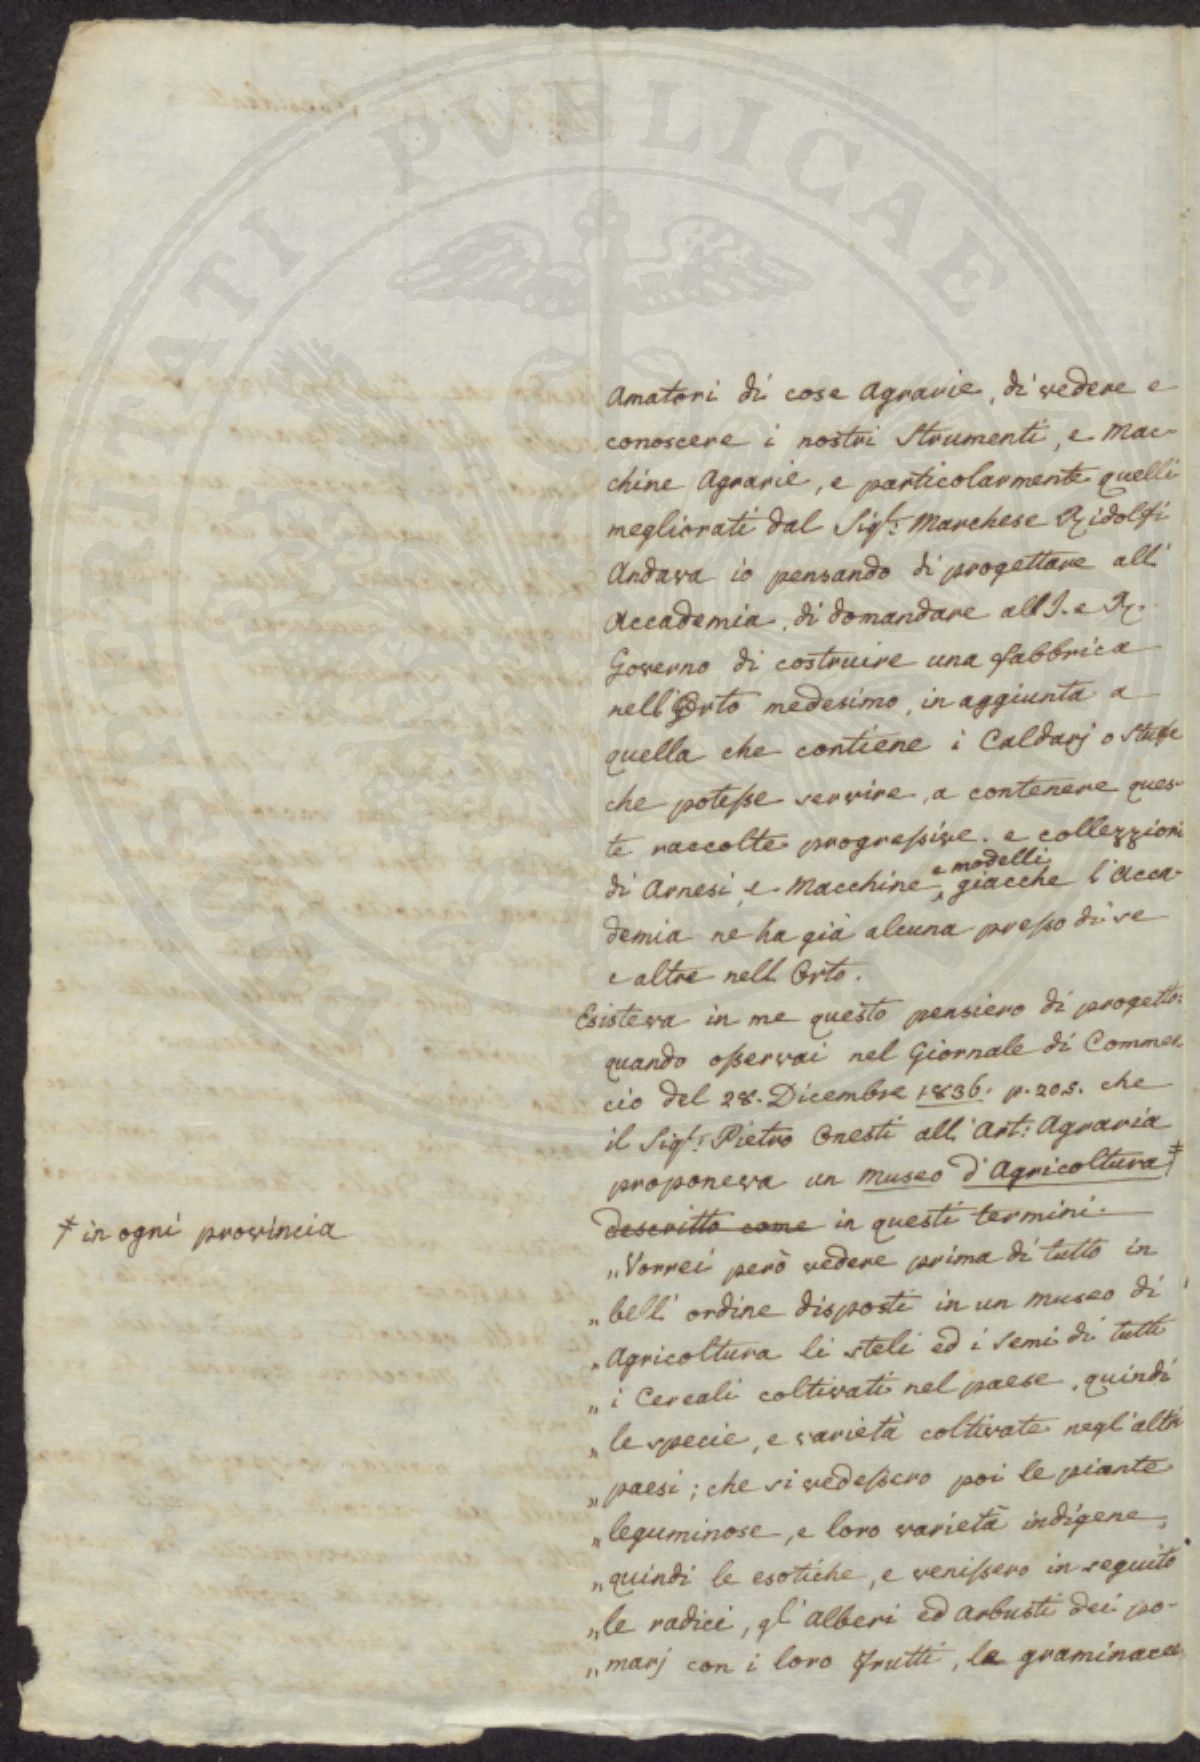 Amatori di cose Agrarie, di vedere e
conoscere i nostri Strumenti, e Mac-
chine Agrarie, e particolarmente quelli
megliorati dal Sigr. Marchese Ridolfi
Andava io pensando di progettare all'
Accademia, di domandare all'I. e R.
Governo di costruire una fabbrica
nell'Orto medesimo, in aggiunta a
quella che contiene i Caldarj o Stufe
che potesse servire, a contenere ques-
te raccolte progressive. e collezzioni
di Arnesi, e Macchine, e modelli giacche l'Acca-
demia ne ha già alcuna presso di se
e altre nell Orto.
Esisteva in me questo pensiero di progetto:
quando osservai nel Giornale di Commer
cio del 28. Dicembre 1836. p. 205. che
il Sigr. Pietro Onesti all'Art: Agraria
proponeva un Museo d'Agricoltura ‡
descritto come in questi termini.
‡ in ogni provincia
„Vorrei però vedere prima di tutto in
„bell'ordine disposti in un museo di
„Agricoltura li steli ed i Semi di tutti
„i Cereali coltivati nel paese, quindi
„le specie, e varietà coltivate negl'altri
„paesi; che si vedessero poi le piante
„leguminose, e loro varietà indigene,
„quindi le esotiche, e venissero in seguito
„le radici, gl'Alberi ed Arbusti dei po-
„marj con i loro frutti, le graminacee
PVBLICAE